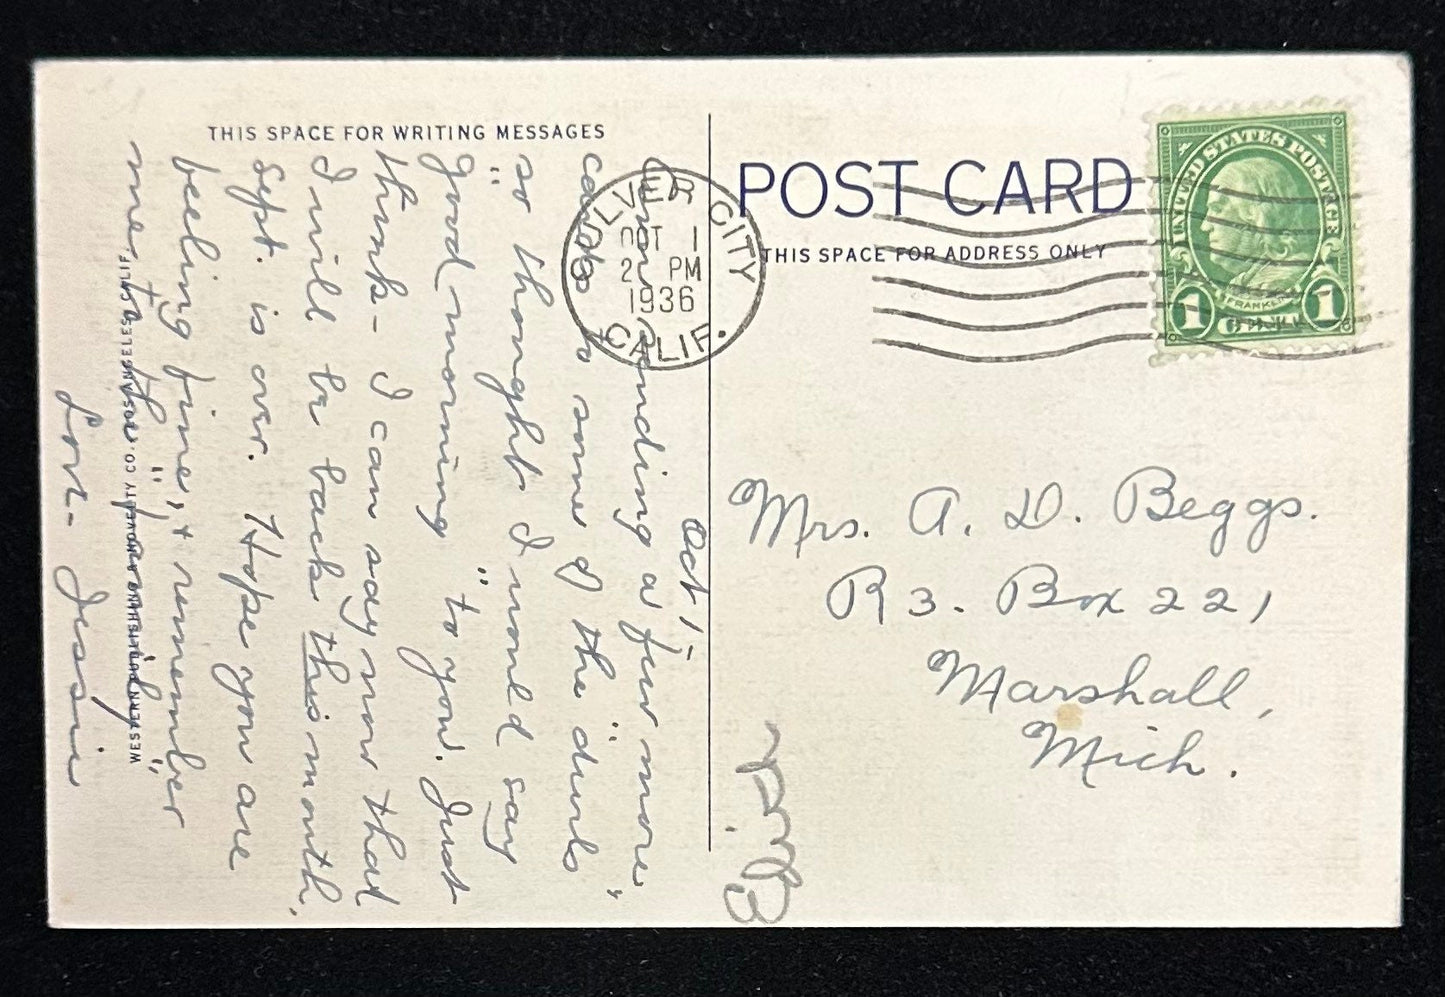 THIS SPACE FOR WRITING MESSAGES
Oct. 1,-
sending a few more
cards to some of the "durls"
so thought I would say
"good morning" to you. Just
think - I can say now that
I will be back this month,
Sept. is over. Hope you are
feeling fine, & remember
me to the
Love - Jessie
WESTERN PUBLISHING & NOVELTY CO. LOS ANGELES, CALIF.
CULVER CITY
OCT 1
2 PM
1936
CALIF.
POST CARD
THIS SPACE FOR ADDRESS ONLY
UNITED STATES POSTAGE
FRANKLIN
1 CENT 1
Mrs. A. D. Beggs.
R 3. Box 221
Marshall,
Mich.